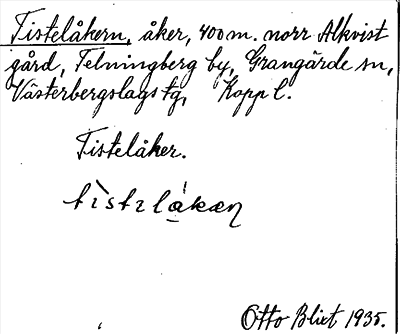 Tistelåkern, åker, 400 m. norr Alkvist
gård, Telningberg by, Grangärde sn,
Västerbergslags tg, Kopp l.
Tistelåker.
Otto Blixt 1935.